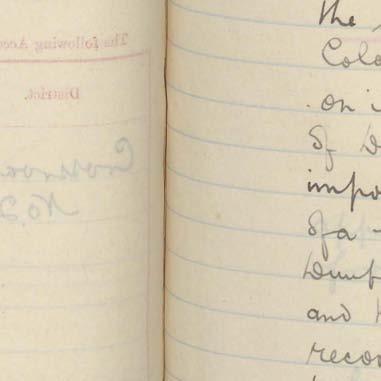 The following Acco
District.
No. 2
the
Colo
on i
of D
impo
of a
Dumf
and
recor